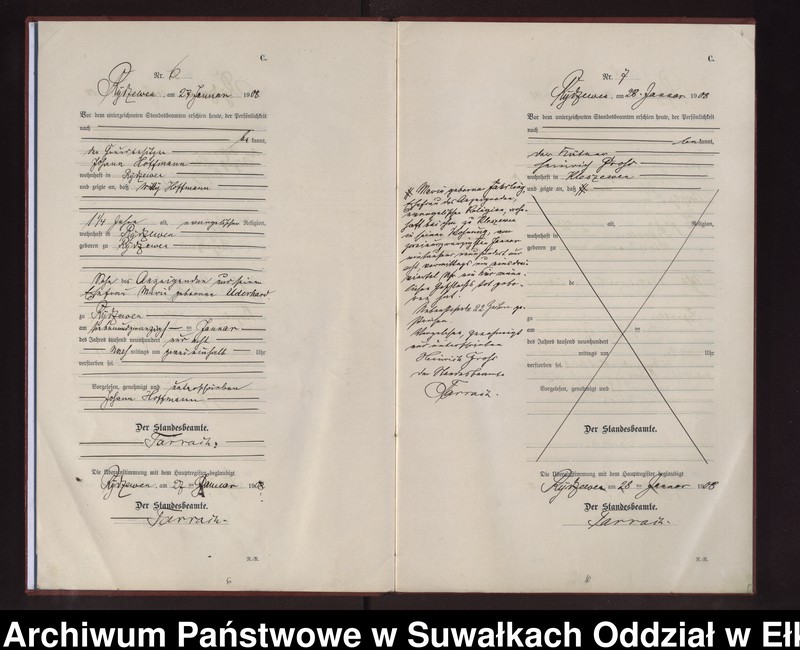 C.
Nr. 6
Rydzewen, am 27. Januar 1908
Vor dem unterzeichneten Standesbeamten erschien heute, der Persönlichkeit
nach
be kannt,
der
Johann Hoffmann
wohnhaft in Rydzewen
und zeigte an, daß Willy Hoffmann
1 1/4 Jahre alt, evangelischer Religion,
wohnhaft in Rydzewen
geboren zu Rydzewen
Sohn des Anzeigenden und seiner
Ehefrau Marie geborenen
zu Rydzewen
am siebenundzwanzigsten Januar
des Jahres tausend neunhundert und acht
Nach mittags um zwei einhalb Uhr
verstorben sei.
Vorgelesen, genehmigt und unterschrieben
Johann Hoffmann
Der Standesbeamte.
Tarrach.
Die Übereinstimmung mit dem Hauptregister beglaubigt
Rydzewen, am 27. Januar 1908
Der Standesbeamte.
Tarrach.
R.-R.
6
C.
Nr. 7
Rydzewen, am 28. Januar 1908
Vor dem unterzeichneten Standesbeamten erschien heute, der Persönlichkeit
nach
be kannt,
der
Heinrich Groß
wohnhaft in
und zeigte an, daß
alt, Religion,
wohnhaft in
geboren zu
de
zu
am
des Jahres tausend neunhundert
mittags um Uhr
verstorben sei.
Vorgelesen, genehmigt und
Der Standesbeamte.
Marie geborene
Ehefrau des Anzeigenden,
evangelischer Religion, wohn-
haft bei ihm zu
in seiner Wohnung, am
Januar
neunhundert und
acht vormittags um
viertel Uhr ein Kind männ-
lichen Geschlechts tot gebo-
ren hat.
22 Zeilen ge-
strichen
Vorgelesen, genehmigt
und unterschrieben
Heinrich Groß
Der Standesbeamte
Tarrach.
Die Übereinstimmung mit dem Hauptregister beglaubigt
Rydzewen, am 28. Januar 1908
Der Standesbeamte.
Tarrach.
R.-R.
Archiwum Państwowe w Suwałkach Oddział w Ełk